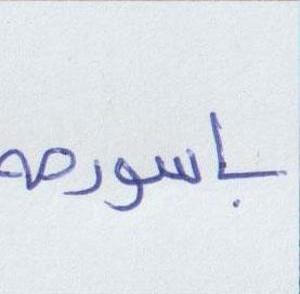 باسورصه